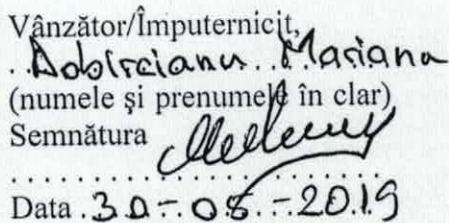 Vânzător/Împuternicit,
Dobîrcianu Mariana
(numele şi prenumele în clar)
Semnătura
Data 30-08-2019